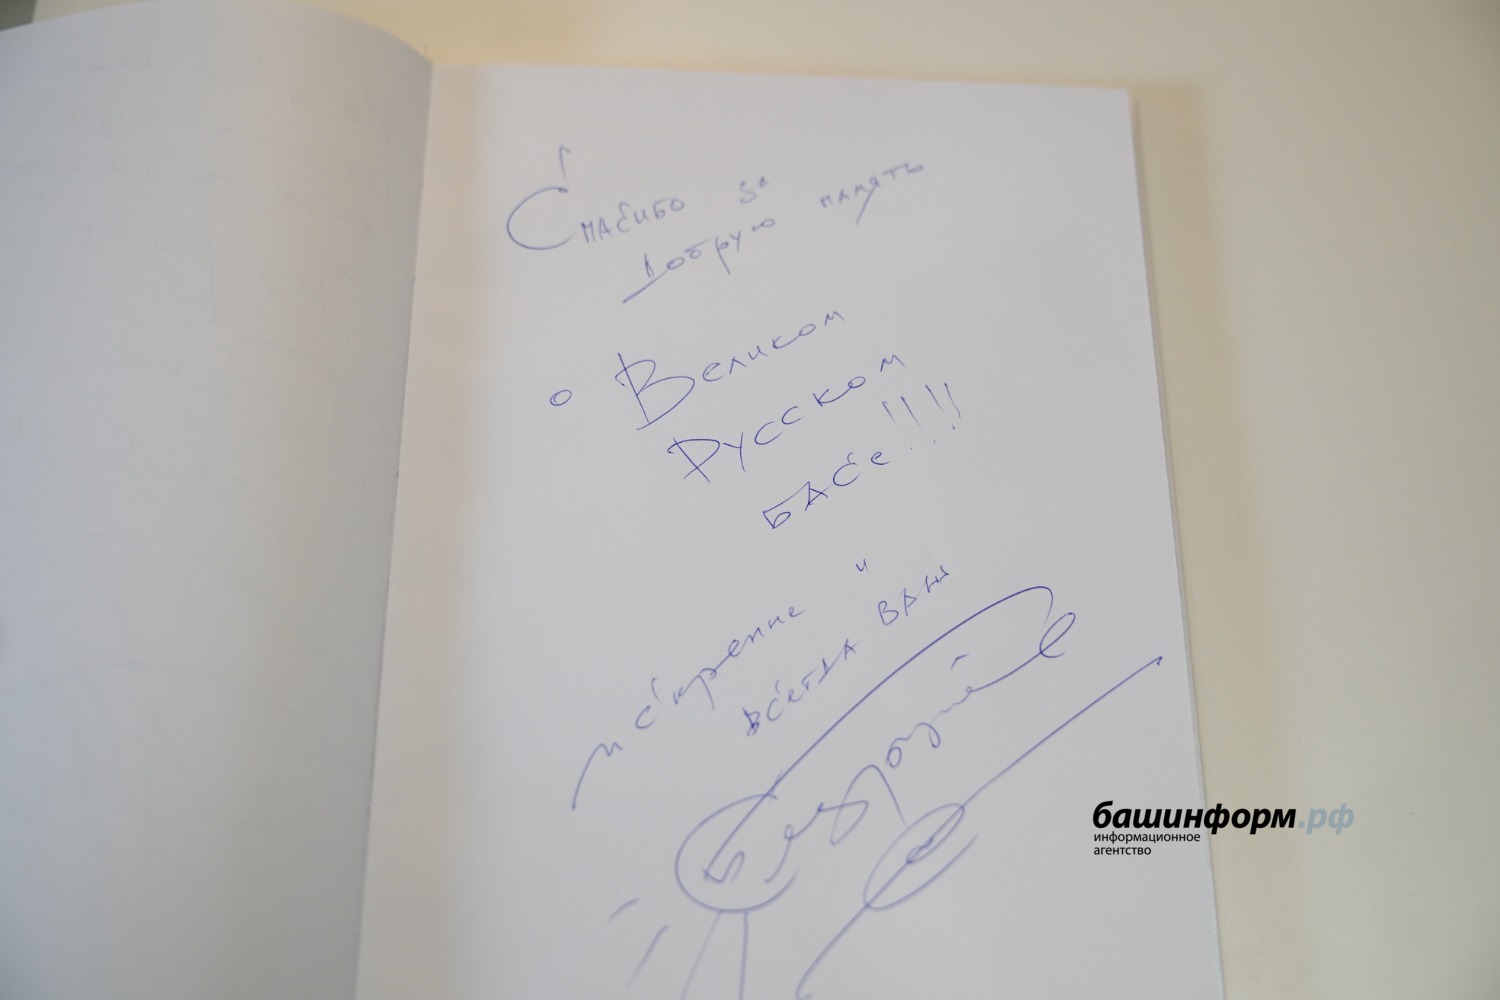 Спасибо за
добрую память
о Великом
Русском
БАСе!!!!
искренне и
всегда ВАШ
башинформ.рф
информационное
агентство